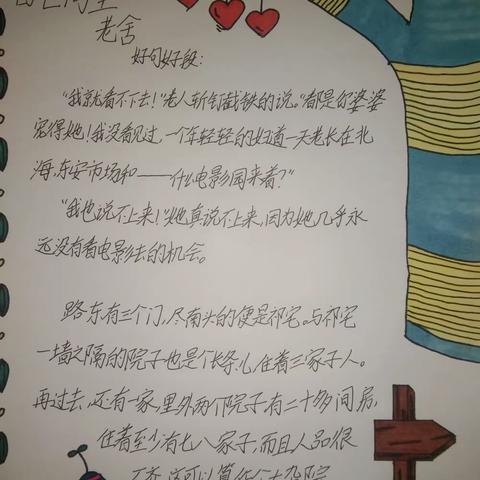 四世同堂
老舍
好句好段：
“我就看不下去！”老人斩钉截铁的说。“都是你婆婆
宠得她！我没看见过，一个年轻轻的妇道一天老长在北
海、东安市场和——什么电影园来着？”
“我也说不上来！”她真说不上来，因为她几乎永
远没有看电影去的机会。
路东有三个门，尽南头的便是祁宅。与祁宅
一墙之隔的院子也是个长条儿，住着三家子人。
再过去，还有一家，里外两个院子，有二十多间房，
住着至少有七八家子，而且人品很
不齐。这可以算作个大杂院